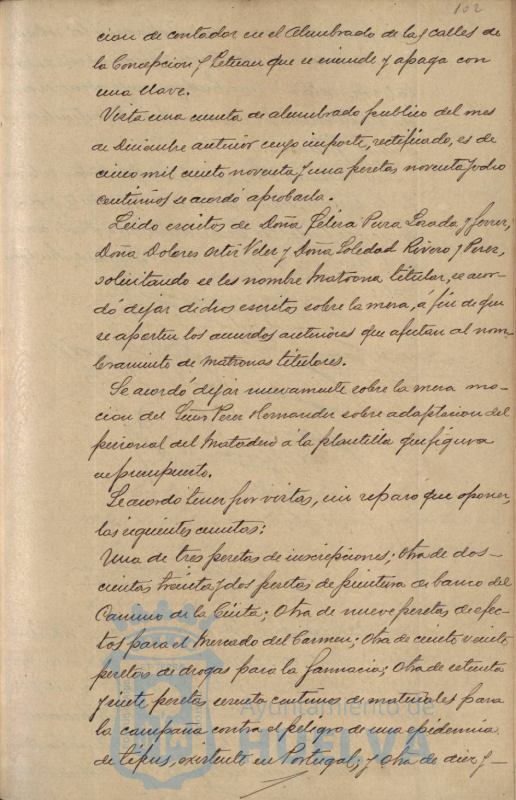 102
cion de contador en el Alumbrado de las calles de
la Concepcion y Tetuan que se enciende y apaga con
una llave.
Vista una cuenta de alumbrado publico del mes
de Diciembre anterior cuyo importe, rectificado, es de
cinco mil ciento noventa y una pesetas noventa y ocho
centimos se acordó aprobarla.
Leido escritos de Doña Felisa Losada y
Doña Dolores Ortiz y Doña Soledad Rivero y Perez,
solicitando se les nombre Matrona titular, se acor-
dó dejar dichos escritos sobre la mesa, á fin de que
se aporten los acuerdos anteriores que afectan al nom-
bramiento de Matronas titulares.
Se acordó dejar nuevamente sobre la mesa mo-
cion del Señor Perez Hernandez sobre adaptacion del
personal del Matadero á la plantilla que figura
en presupuesto.
Se acordó tener por vistas, sin reparo que oponer,
las siguientes cuentas:
Una de tres pesetas de inscripciones; Otra de dos-
cientas treinta y dos pesetas de pintura de bancos del
Camino de la Cinta; Otra de nueve pesetas de efec-
tos para el Mercado del Carmen; Otra de ciento veinte
pesetas de drogas para la farmacia; Otra de setenta
y siete pesetas sesenta centimos de materiales para
la campaña contra el peligro de una epidemia
de tifus, existente en Portugal; y Otra de diez y-
Ayuntamiento de
HUELVA